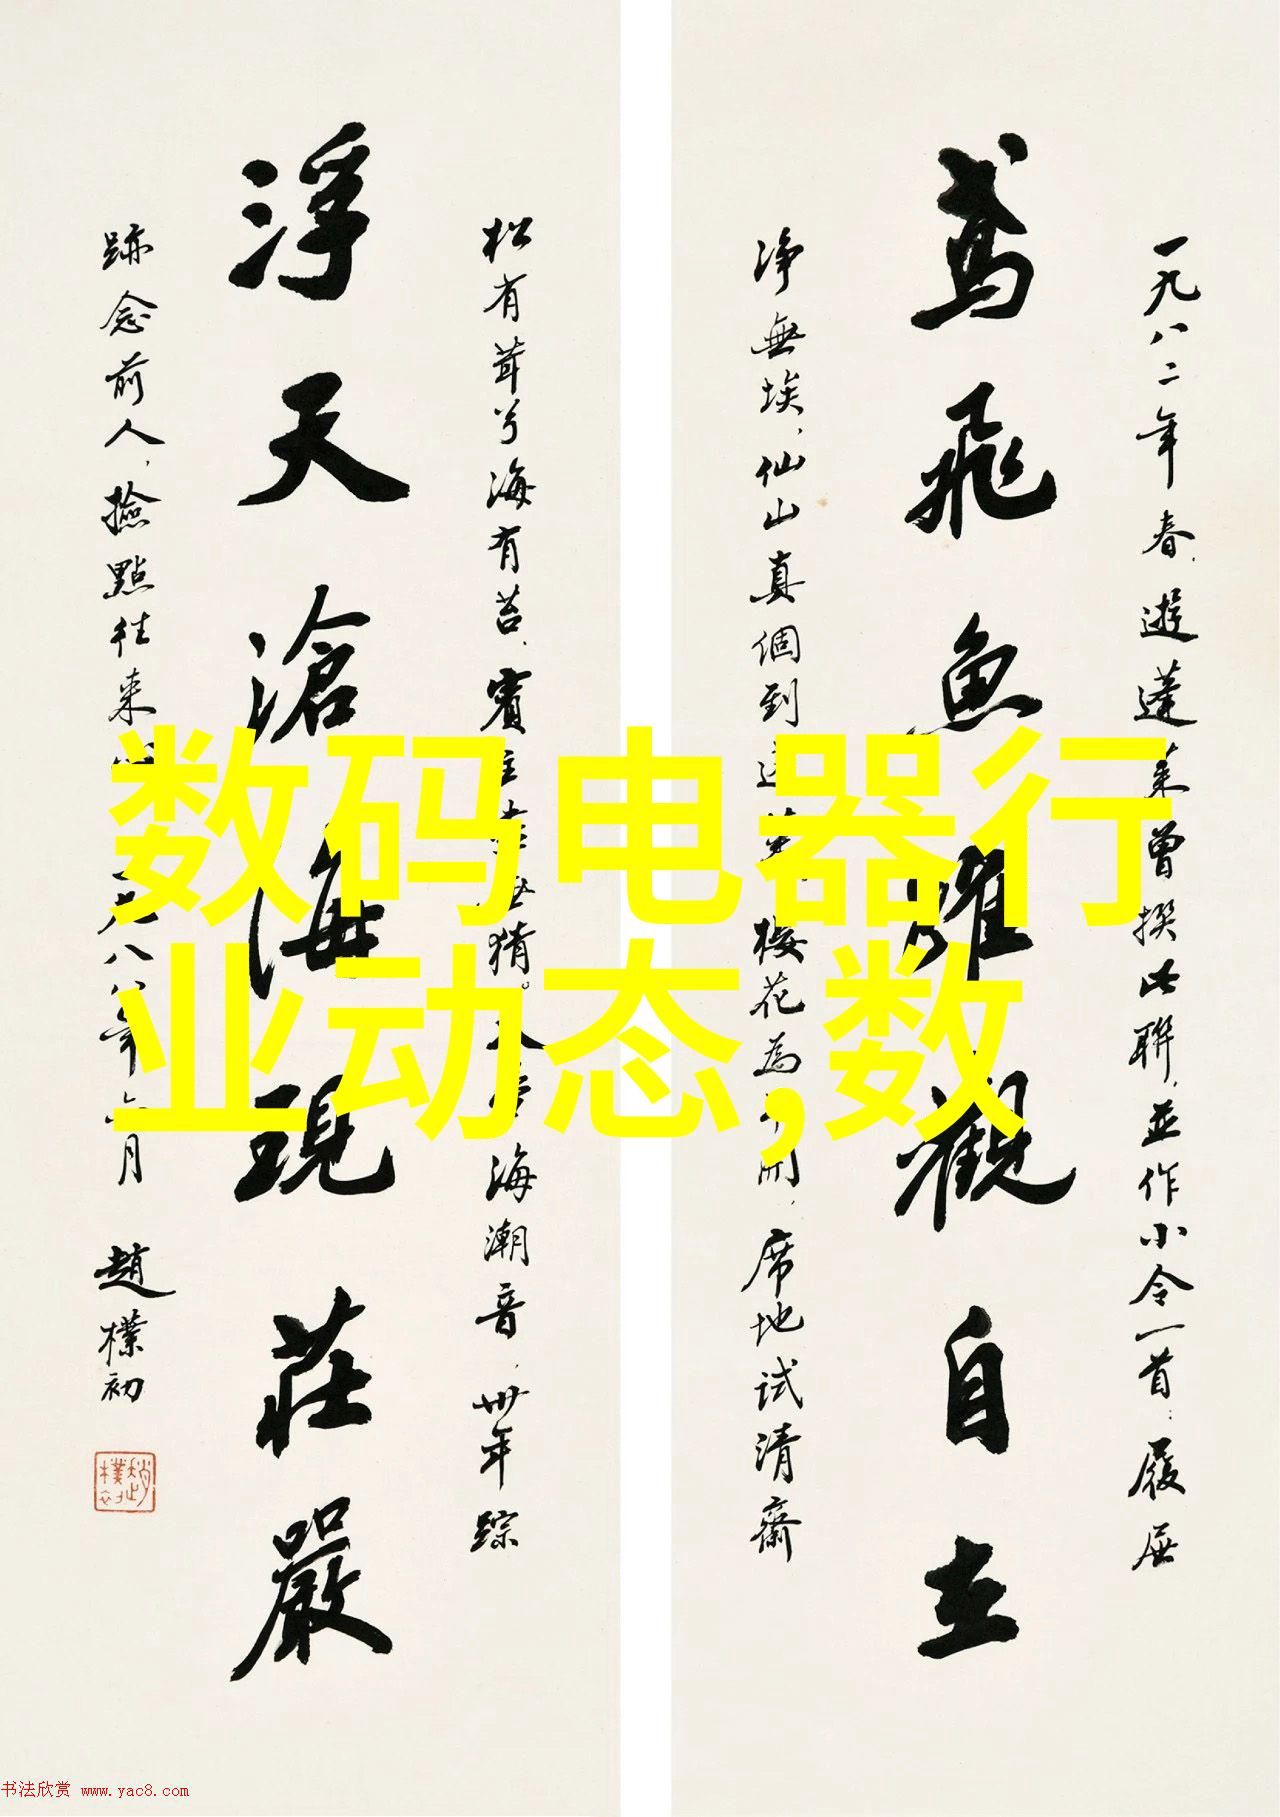 鸢飛魚躍觀自在
一九八二年春,遊蓬莱曾撰此聯,並作小令一首:履屐
净無埃,仙山真個到
梅花為
開,席地試清齋
浮天滄海現莊嚴
松有茸兮海有苔,賓主
無猜。
海潮音,卅年踪
跡念前人,撿點往来
一九八八年六月 趙樸初
趙樸初
数码电器行
业动态,数
书法欣赏 www.yac8.com